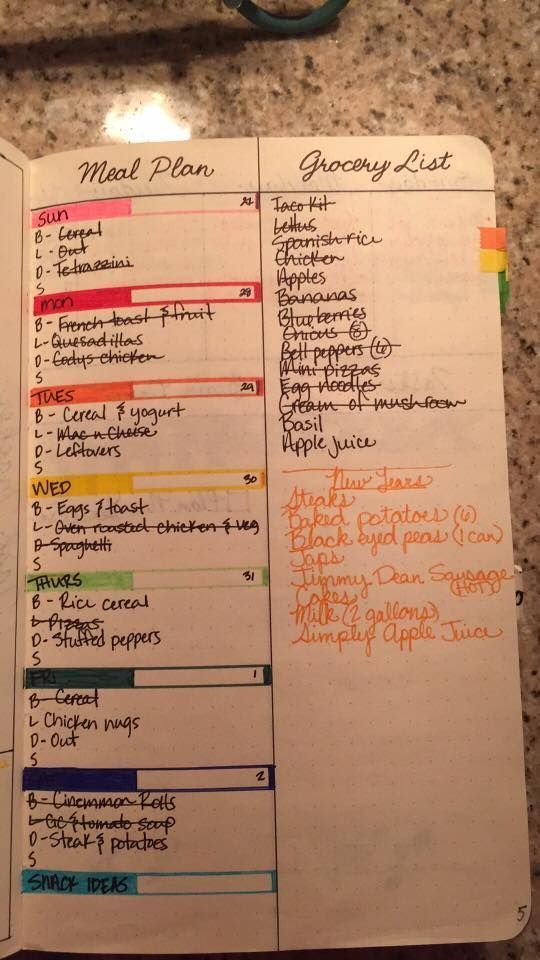 Meal Plan
Sun 27
B - Cereal
L - Out
D - Tetrazzini
S
mon 28
B - French toast & fruit
L - Quesadillas
D - Codys chicken
S
TUES 29
B - Cereal & yogurt
L - Mac n Cheese
D - Leftovers
S
WED 30
B - Eggs & toast
L - Oven roasted chicken & veg
D - Spaghetti
S
THURS 31
B - Rice cereal
L - Pizzas
D - Stuffed peppers
S
FRI 1
B - Cereal
L Chicken nugs
D - Out
S
2
B - Cinnmmon Rolls
L - GC & tomato soup
D - Steak & potatoes
S
SNACK IDEAS
Grocery List
Taco Kit
Lettus
Spanish rice
Chicken
Apples
Bananas
Blueberries
(8)
Bell peppers (6)
Mini pizzas
Egg noodles
Cream of mushroom
Basil
Apple juice
New Years
Steaks
Baked potatoes (6)
Black eyed peas (1 can)
Jimmy Dean Sausage
(HOT)
Cakes
Milk (2 gallons)
Simply Apple Juice
5